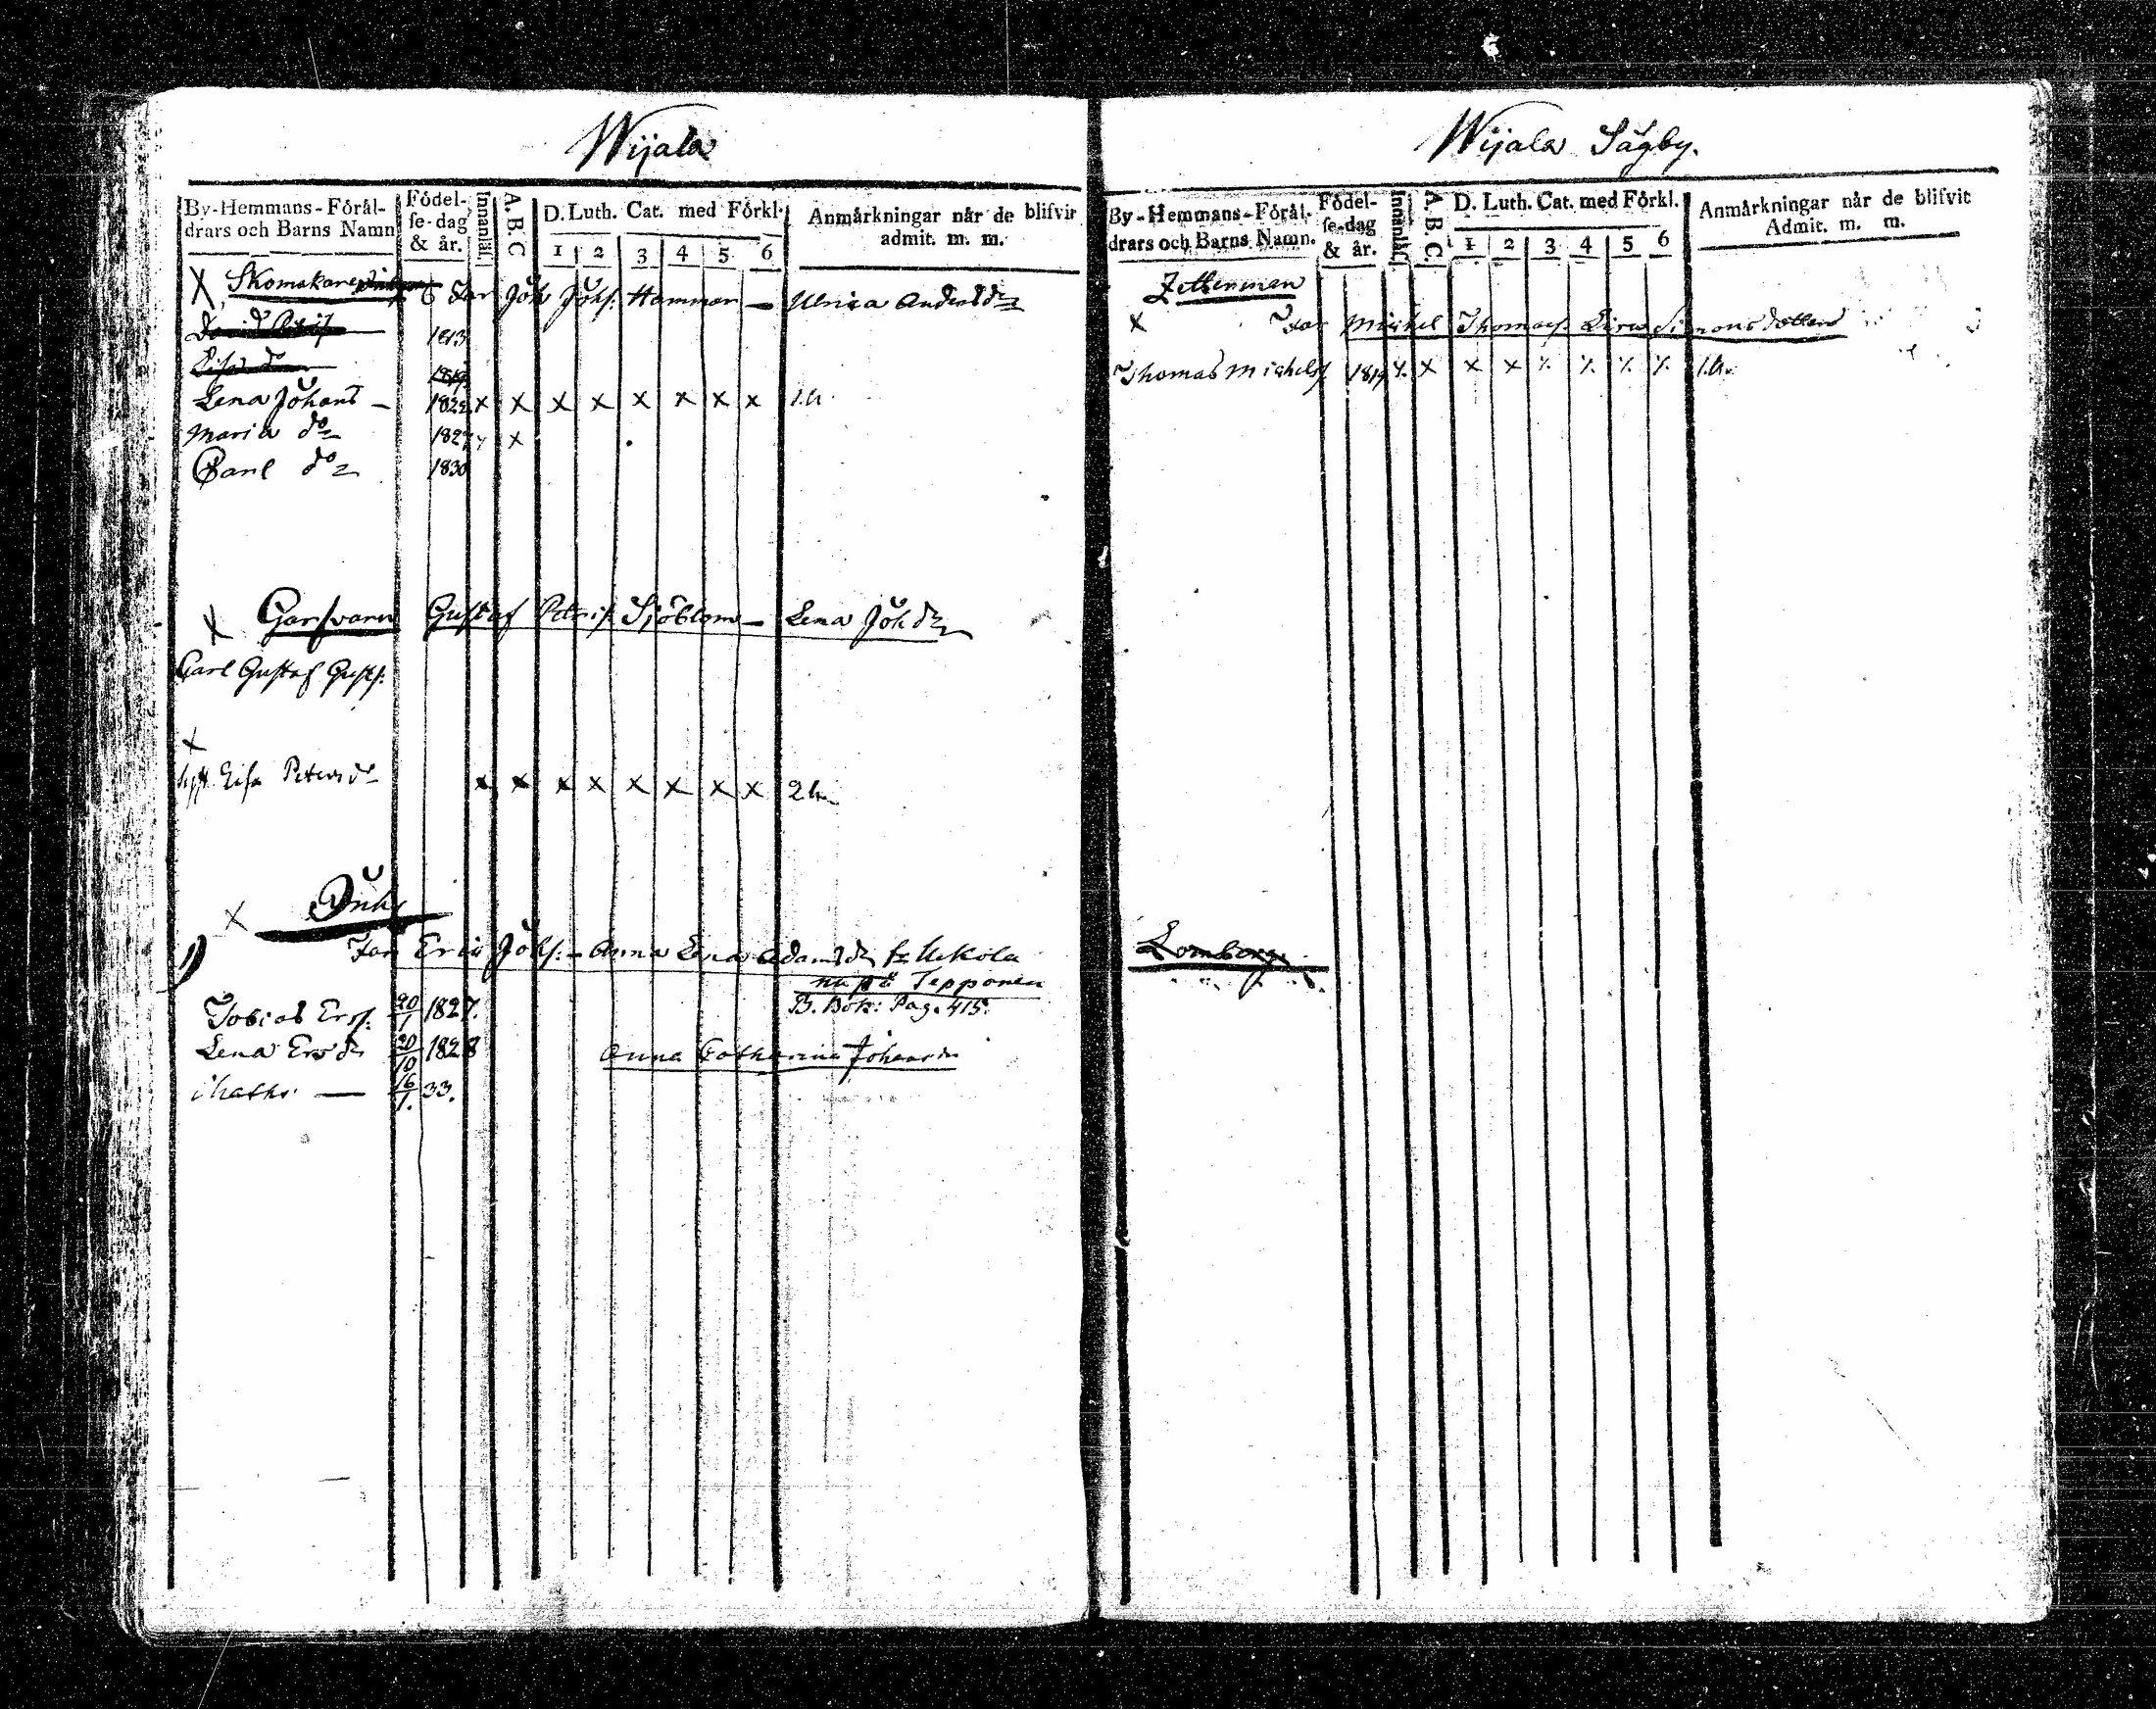 Wijala
By-Hemmans-Förål-
drars och Barns Namn
Födel-
se-dag
& år.
Innanläs.
A. B. C
D. Luth. Cat. med Förkl.
1 2 3 4 5 6
Anmårkningar når de blifvit
admit. m. m.
X Skomakare Tor Joh Johs. Hammar — Ulrica Andersdr
1813
Lisa do
1819
Lena Johans — 1822 x x x x x x x x
Maria do 1827 x
Carl do 1830
X Garfvare Gustaf Petris. Sjöblom — Lena Joh dr
Carl Gustaf Gusts.
X
Lisa Peters dr x x x x x x x x
X
Eric Johs. — Anna Lena Adamsdr fr Uekola
nu på Tepponen
B. Bok: Pag. 415.
Tobias Ers. 20/1 1827.
Lena Ersdr 20/10 1828
Anna Catharina Johansdr
Maths — 16/1. 33.
Wijala Sågby.
By-Hemmans-Förål-
drars och Barns Namn.
Födel-
se-dag
& år.
Innanläs.
A. B. C.
D. Luth. Cat. med Förkl.
1 2 3 4 5 6
Anmårkningar når de blifvit
Admit. m. m.
Zetterman
X Tor Michel Thomas. Simons dotter
Thomas Michels. 1819 x x x
Lomborg